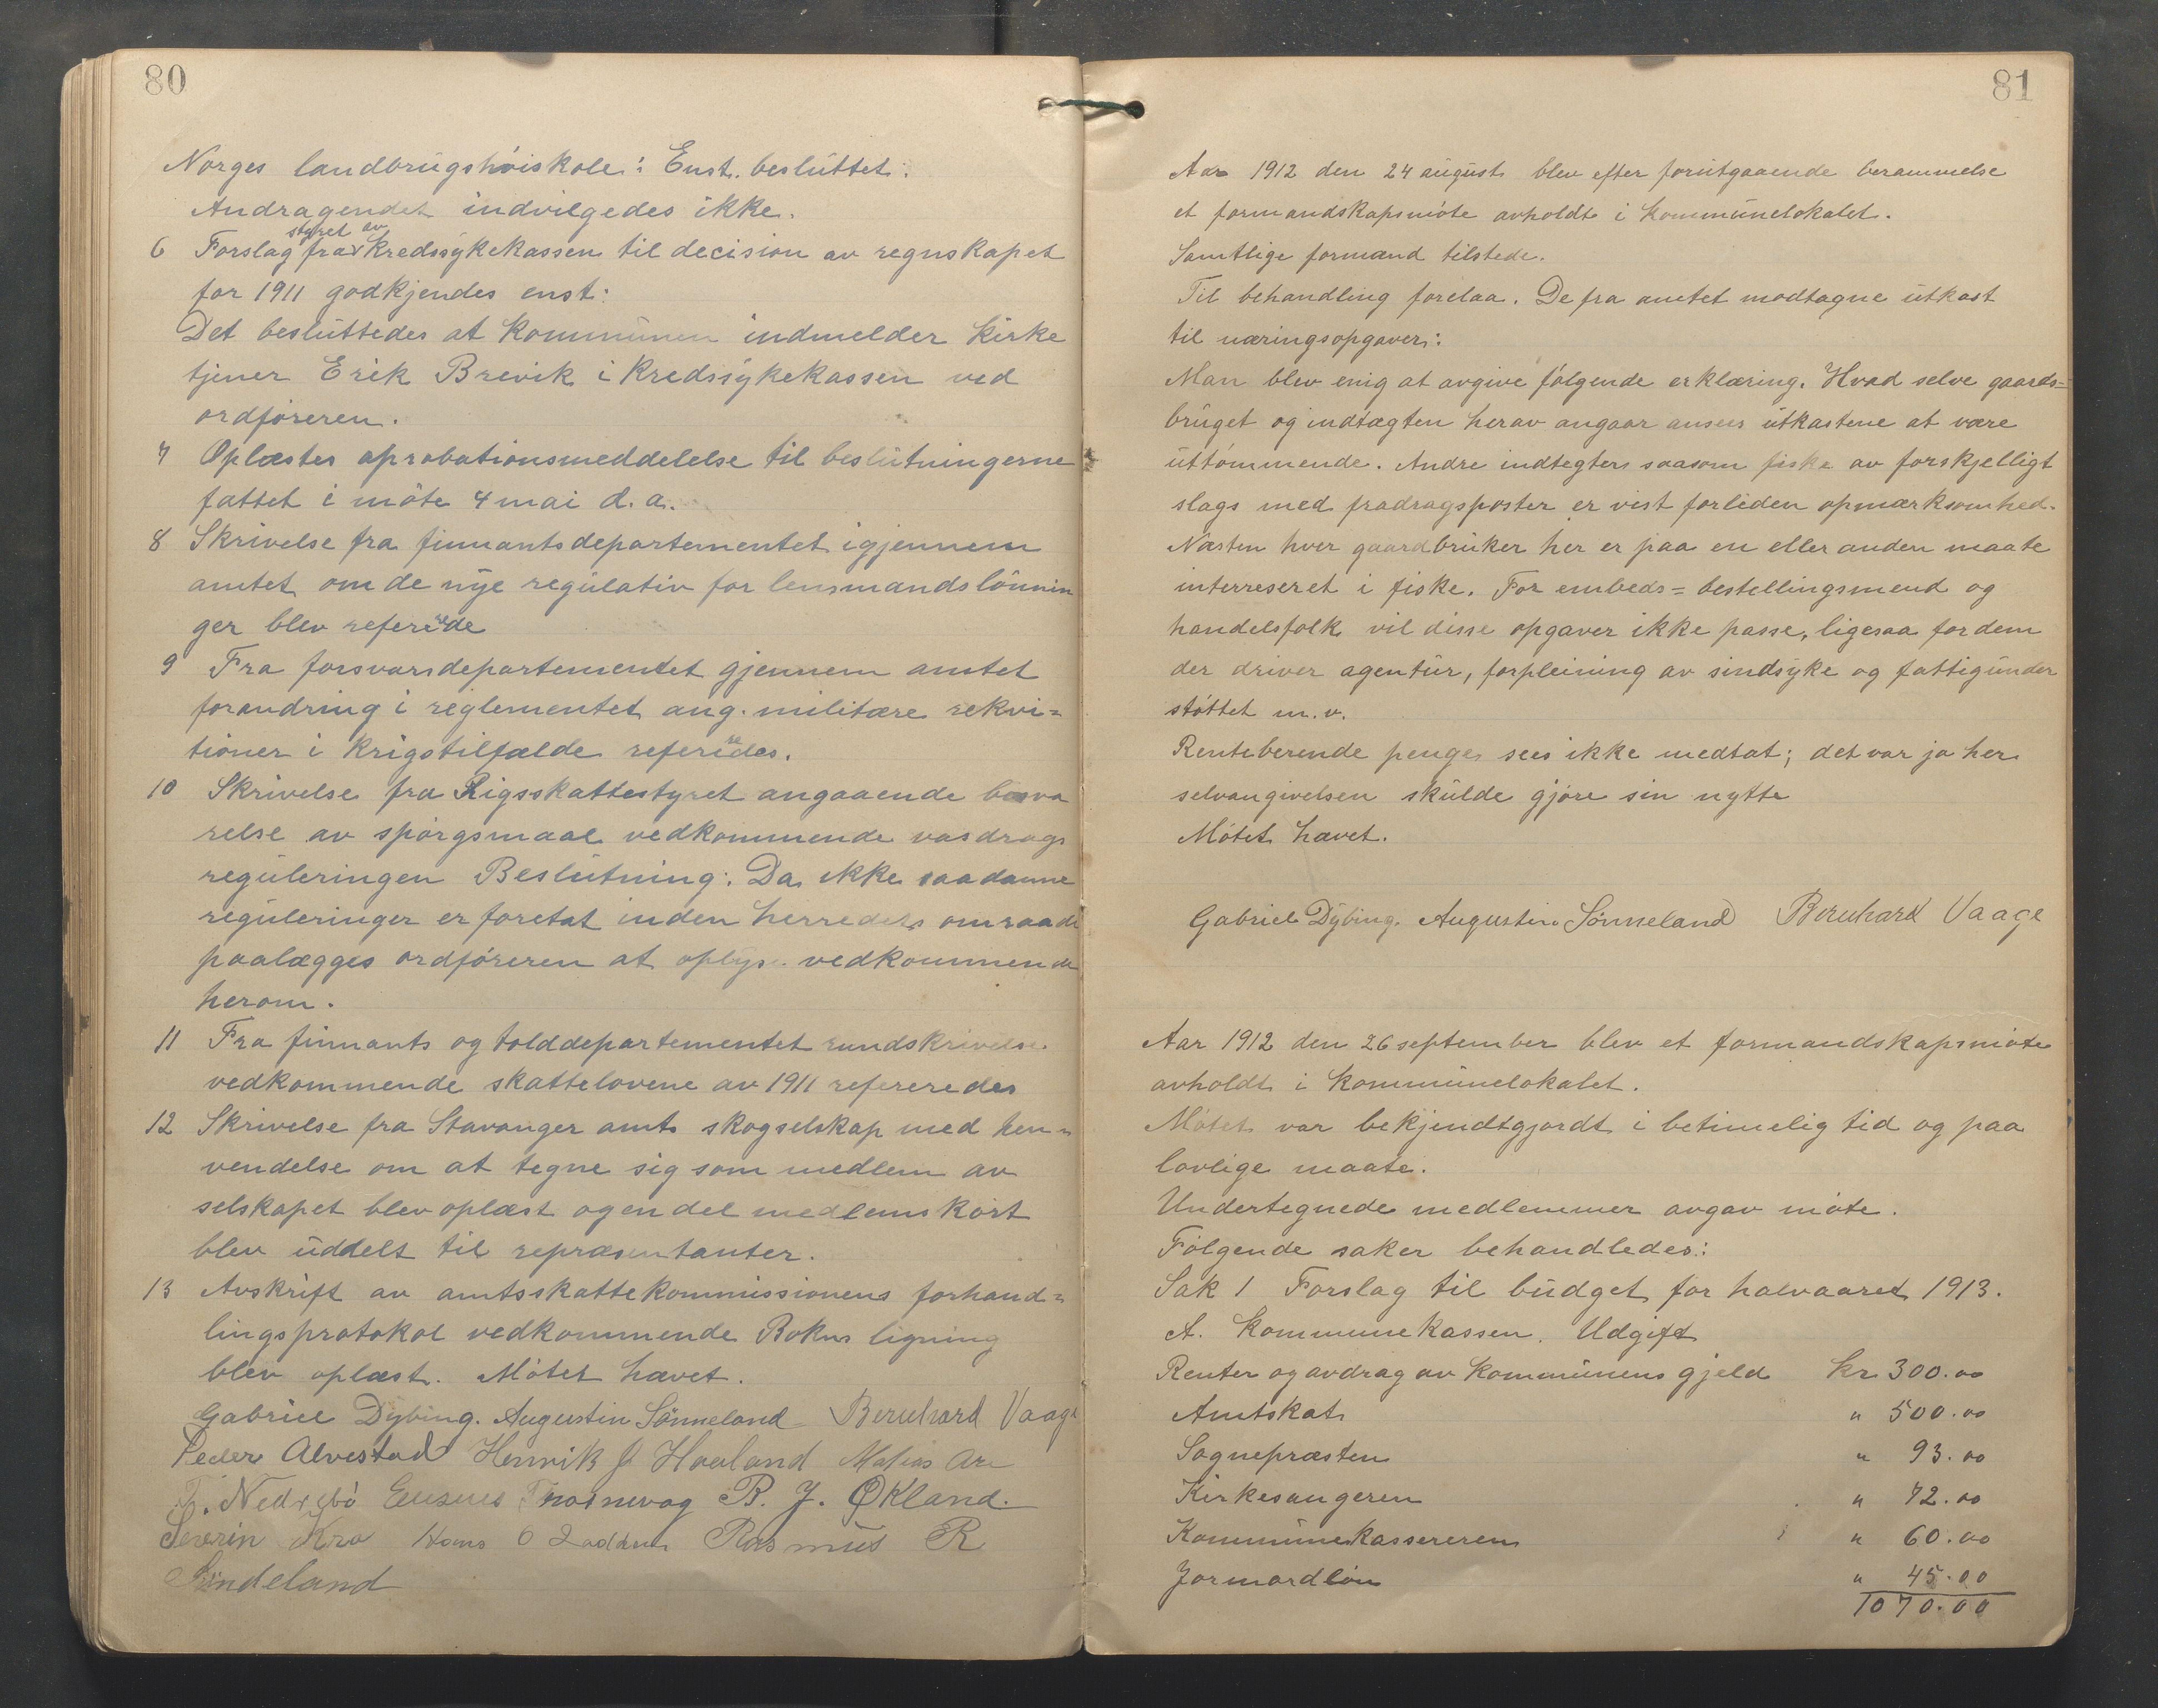 80
Norges landbrugshøiskole: Enst. besluttet:
Andragendet indvilgedes ikke.
6 Forslag fra styret av kredssykekassen til decision av regnskapet
for 1911 godkjendes enst:
Det besluttedes at kommunen indmelder kirke
tjener Erik Brevik i kredssykekassen ved
ordføreren.
7 Oplæstes aprobationsmeddelelse til beslutningerne
fattet i møte 4 mai d.a.
8 Skrivelse fra finnantsdepartementet igjennem
amtet om de nye regulativ for lensmandslønnin
ger blev referede
9 Fra forsvarsdepartementet gjennem amtet
forandring i reglementet ang. militære rekvi=
tioner i krigstilfælde refereredes.
10 Skrivelse fra Rigsskattestyret angaaende besva
relse av spørgsmaal vedkommende vasdrags
reguleringen Beslutning: Da ikke saadanne
reguleringer er foretat inden herredets omraade
paalægges ordføreren at oplyse vedkommende
herom.
11 Fra finnants og tolddepartementet rundskrivelse
vedkommende skattelovene av 1911 refereredes
12 Skrivelse fra Stavanger amts skogselskap med hen=
vendelse om at tegne sig som medlem av
selskapet blev oplæst og en del medlemskort
blev uddelt til repræsentanter.
13 Avskrift av amtsskattekommissionens forhand=
lingsprotokol vedkommende Bokns ligning
blev oplæst. Møtet hævet.
Gabriel Dybing. Augustin Sønneland Bernhard Vaage
Peder Alvestad Henrik J Haaland
T. Nedrebø B. J. Økland.
Severin Kro Hans O Rasmus R
Sundeland
81
Aar 1912 den 24 august blev efter forutgaaende berammelse
et formandskapsmøte avholdt i kommunelokalet.
Samtlige formænd tilstede.
Til behandling forelaa. De fra amtet modtagne utkast
til næringsopgaver:
Man blev enig at avgive følgende erklæring. Hvad selve gaards=
bruget og indtægten herav angaar ansees utkastene at være
uttømmende. Andre indtegter saasom fiske av forskjelligt
slags med fradragsposter er vist forliden opmærksomhed.
Næsten hver gaardbruker her er paa en eller anden maate
interreseret i fiske. For embeds= bestellingsmend og
handelsfolk vil disse opgaver ikke passe, ligesaa for dem
der driver agentur, forpleining av sindsyke og fattigunder
støttet m.v.
Renteberende penger sees ikke medtat; det var jo her
selvangivelsen skulde gjøre sin nytte
Møtet hævet.
Gabriel Dybing. Augustin Sønneland Bernhard Vaage
Aar 1912 den 26 september blev et formandskapsmøte
avholdt i kommunelokalet.
Møtet var bekjendtgjordt i betimelig tid og paa
lovlige maate.
Undertegnede medlemmer avgav møte.
Følgende saker behandledes:
Sak 1 Forslag til budget for halvaaret 1913.
A. Kommunekassen. Udgift
Renter og avdrag av kommunens gjeld kr 300.00
Amtskat " 500.00
Sognepræsten " 93.00
Kirkesangeren " 72.00
Kommunekassereren " 60.00
Jormordløn " 45.00
1070.00